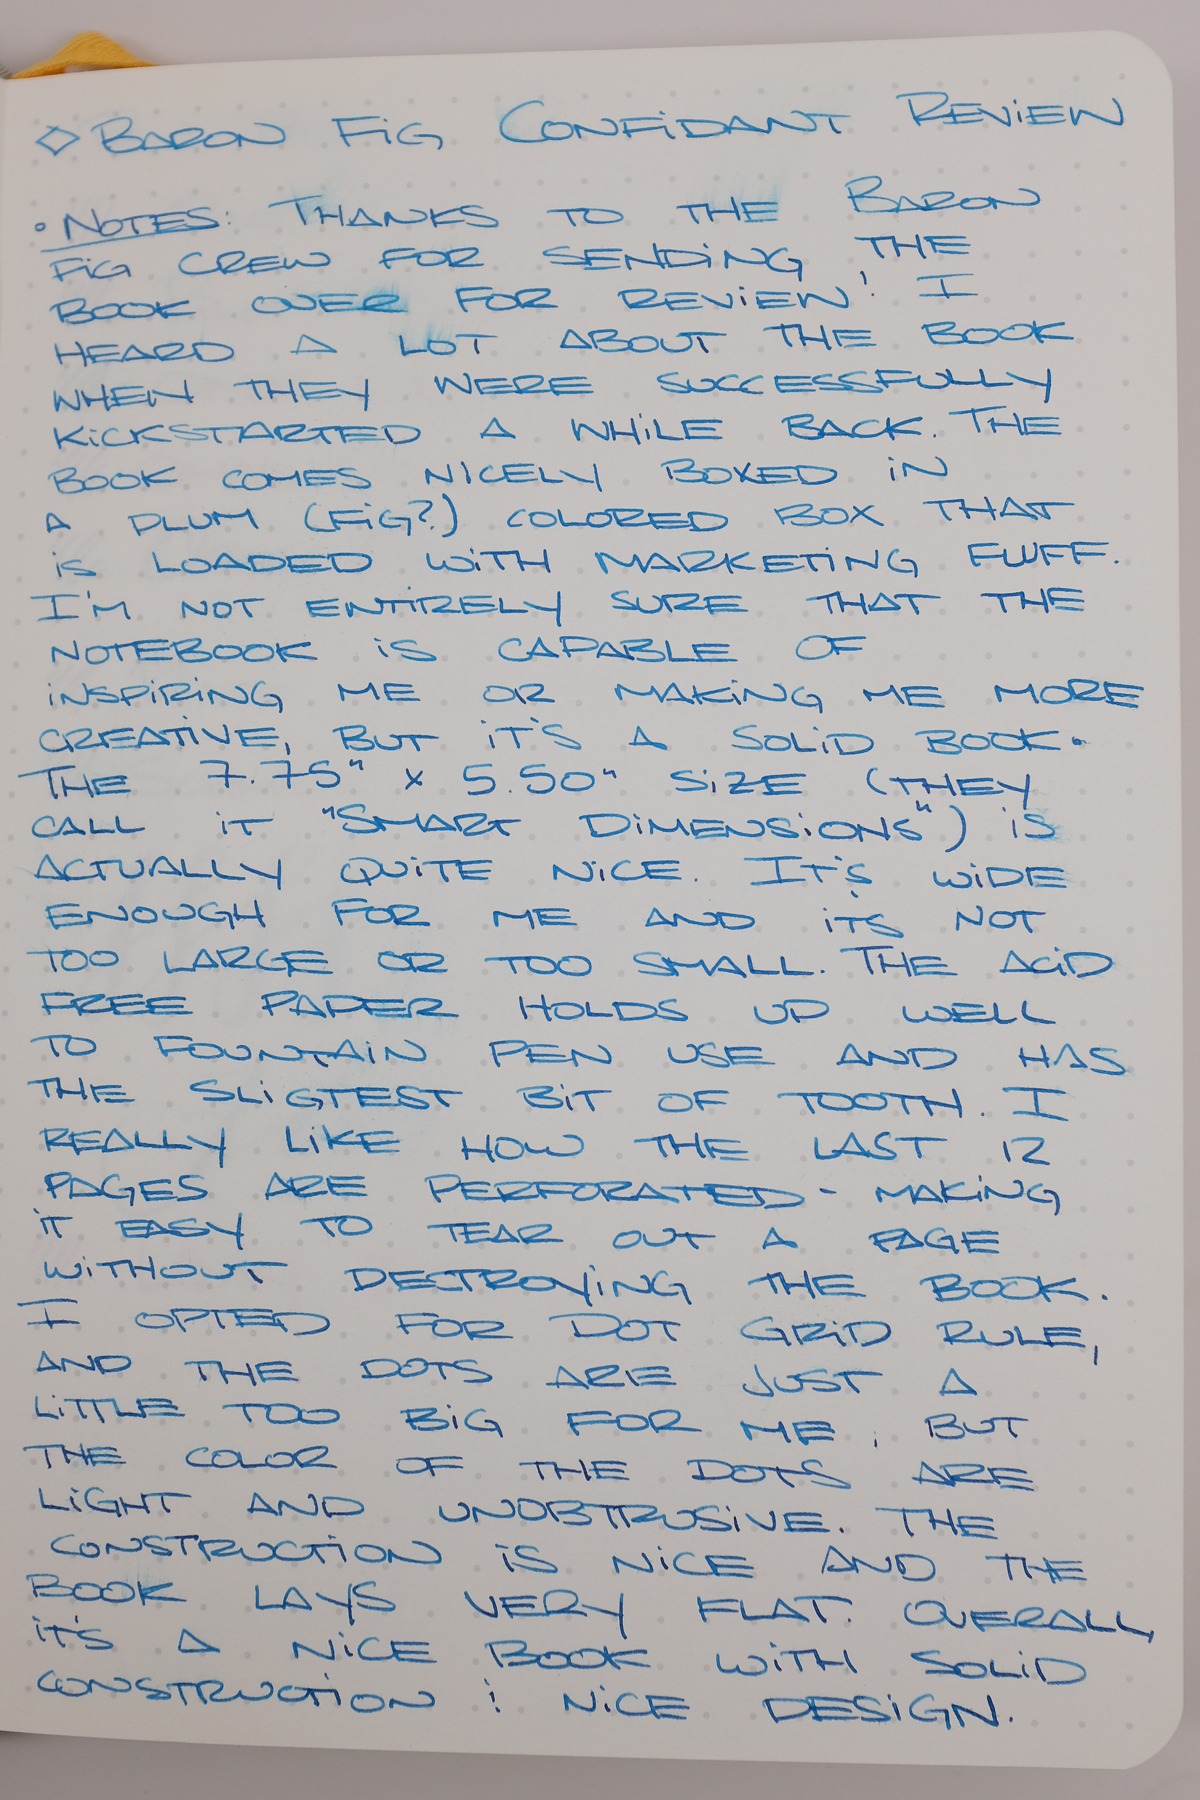 ◇ BARON FIG CONFIDANT REVIEW
• NOTES: THANKS TO THE BARON
FIG CREW FOR SENDING THE
BOOK OVER FOR REVIEW! I
HEARD A LOT ABOUT THE BOOK
WHEN THEY WERE SUCCESSFULLY
KICKSTARTED A WHILE BACK. THE
BOOK COMES NICELY BOXED IN
A PLUM (FIG?) COLORED BOX THAT
IS LOADED WITH MARKETING FLUFF.
I'M NOT ENTIRELY SURE THAT THE
NOTEBOOK IS CAPABLE OF
INSPIRING ME OR MAKING ME MORE
CREATIVE, BUT IT'S A SOLID BOOK.
THE 7.75" x 5.50" SIZE (THEY
CALL IT "SMART DIMENSIONS") IS
ACTUALLY QUITE NICE. IT'S WIDE
ENOUGH FOR ME AND IT'S NOT
TOO LARGE OR TOO SMALL. THE ACID
FREE PAPER HOLDS UP WELL
TO FOUNTAIN PEN USE AND HAS
THE SLIGTEST BIT OF TOOTH. I
REALLY LIKE HOW THE LAST 12
PAGES ARE PERFORATED - MAKING
IT EASY TO TEAR OUT A PAGE
WITHOUT DESTROYING THE BOOK.
I OPTED FOR DOT GRID RULE,
AND THE DOTS ARE JUST A
LITTLE TOO BIG FOR ME, BUT
THE COLOR OF THE DOTS ARE
LIGHT AND UNOBTRUSIVE. THE
CONSTRUCTION IS NICE AND THE
BOOK LAYS VERY FLAT. OVERALL,
IT'S A NICE BOOK WITH SOLID
CONSTRUCTION ! NICE DESIGN.